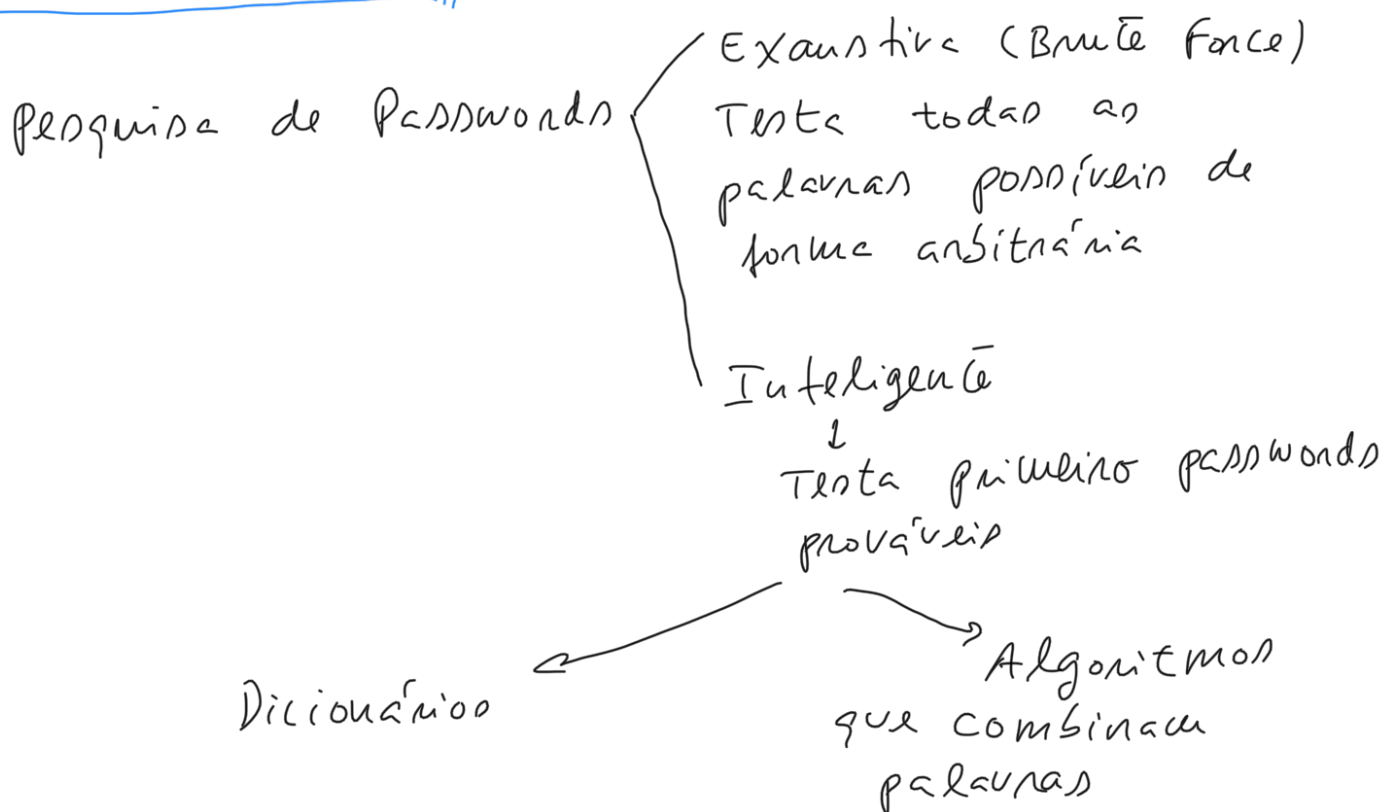 Pesquisa de Passwords
Exaustiva (Brute Force)
Testa todas as
palavras possíveis de
forma arbitrária
Inteligente
Testa primeiro passwords
prováveis
Dicionários
Algoritmos
que combinam
palavras